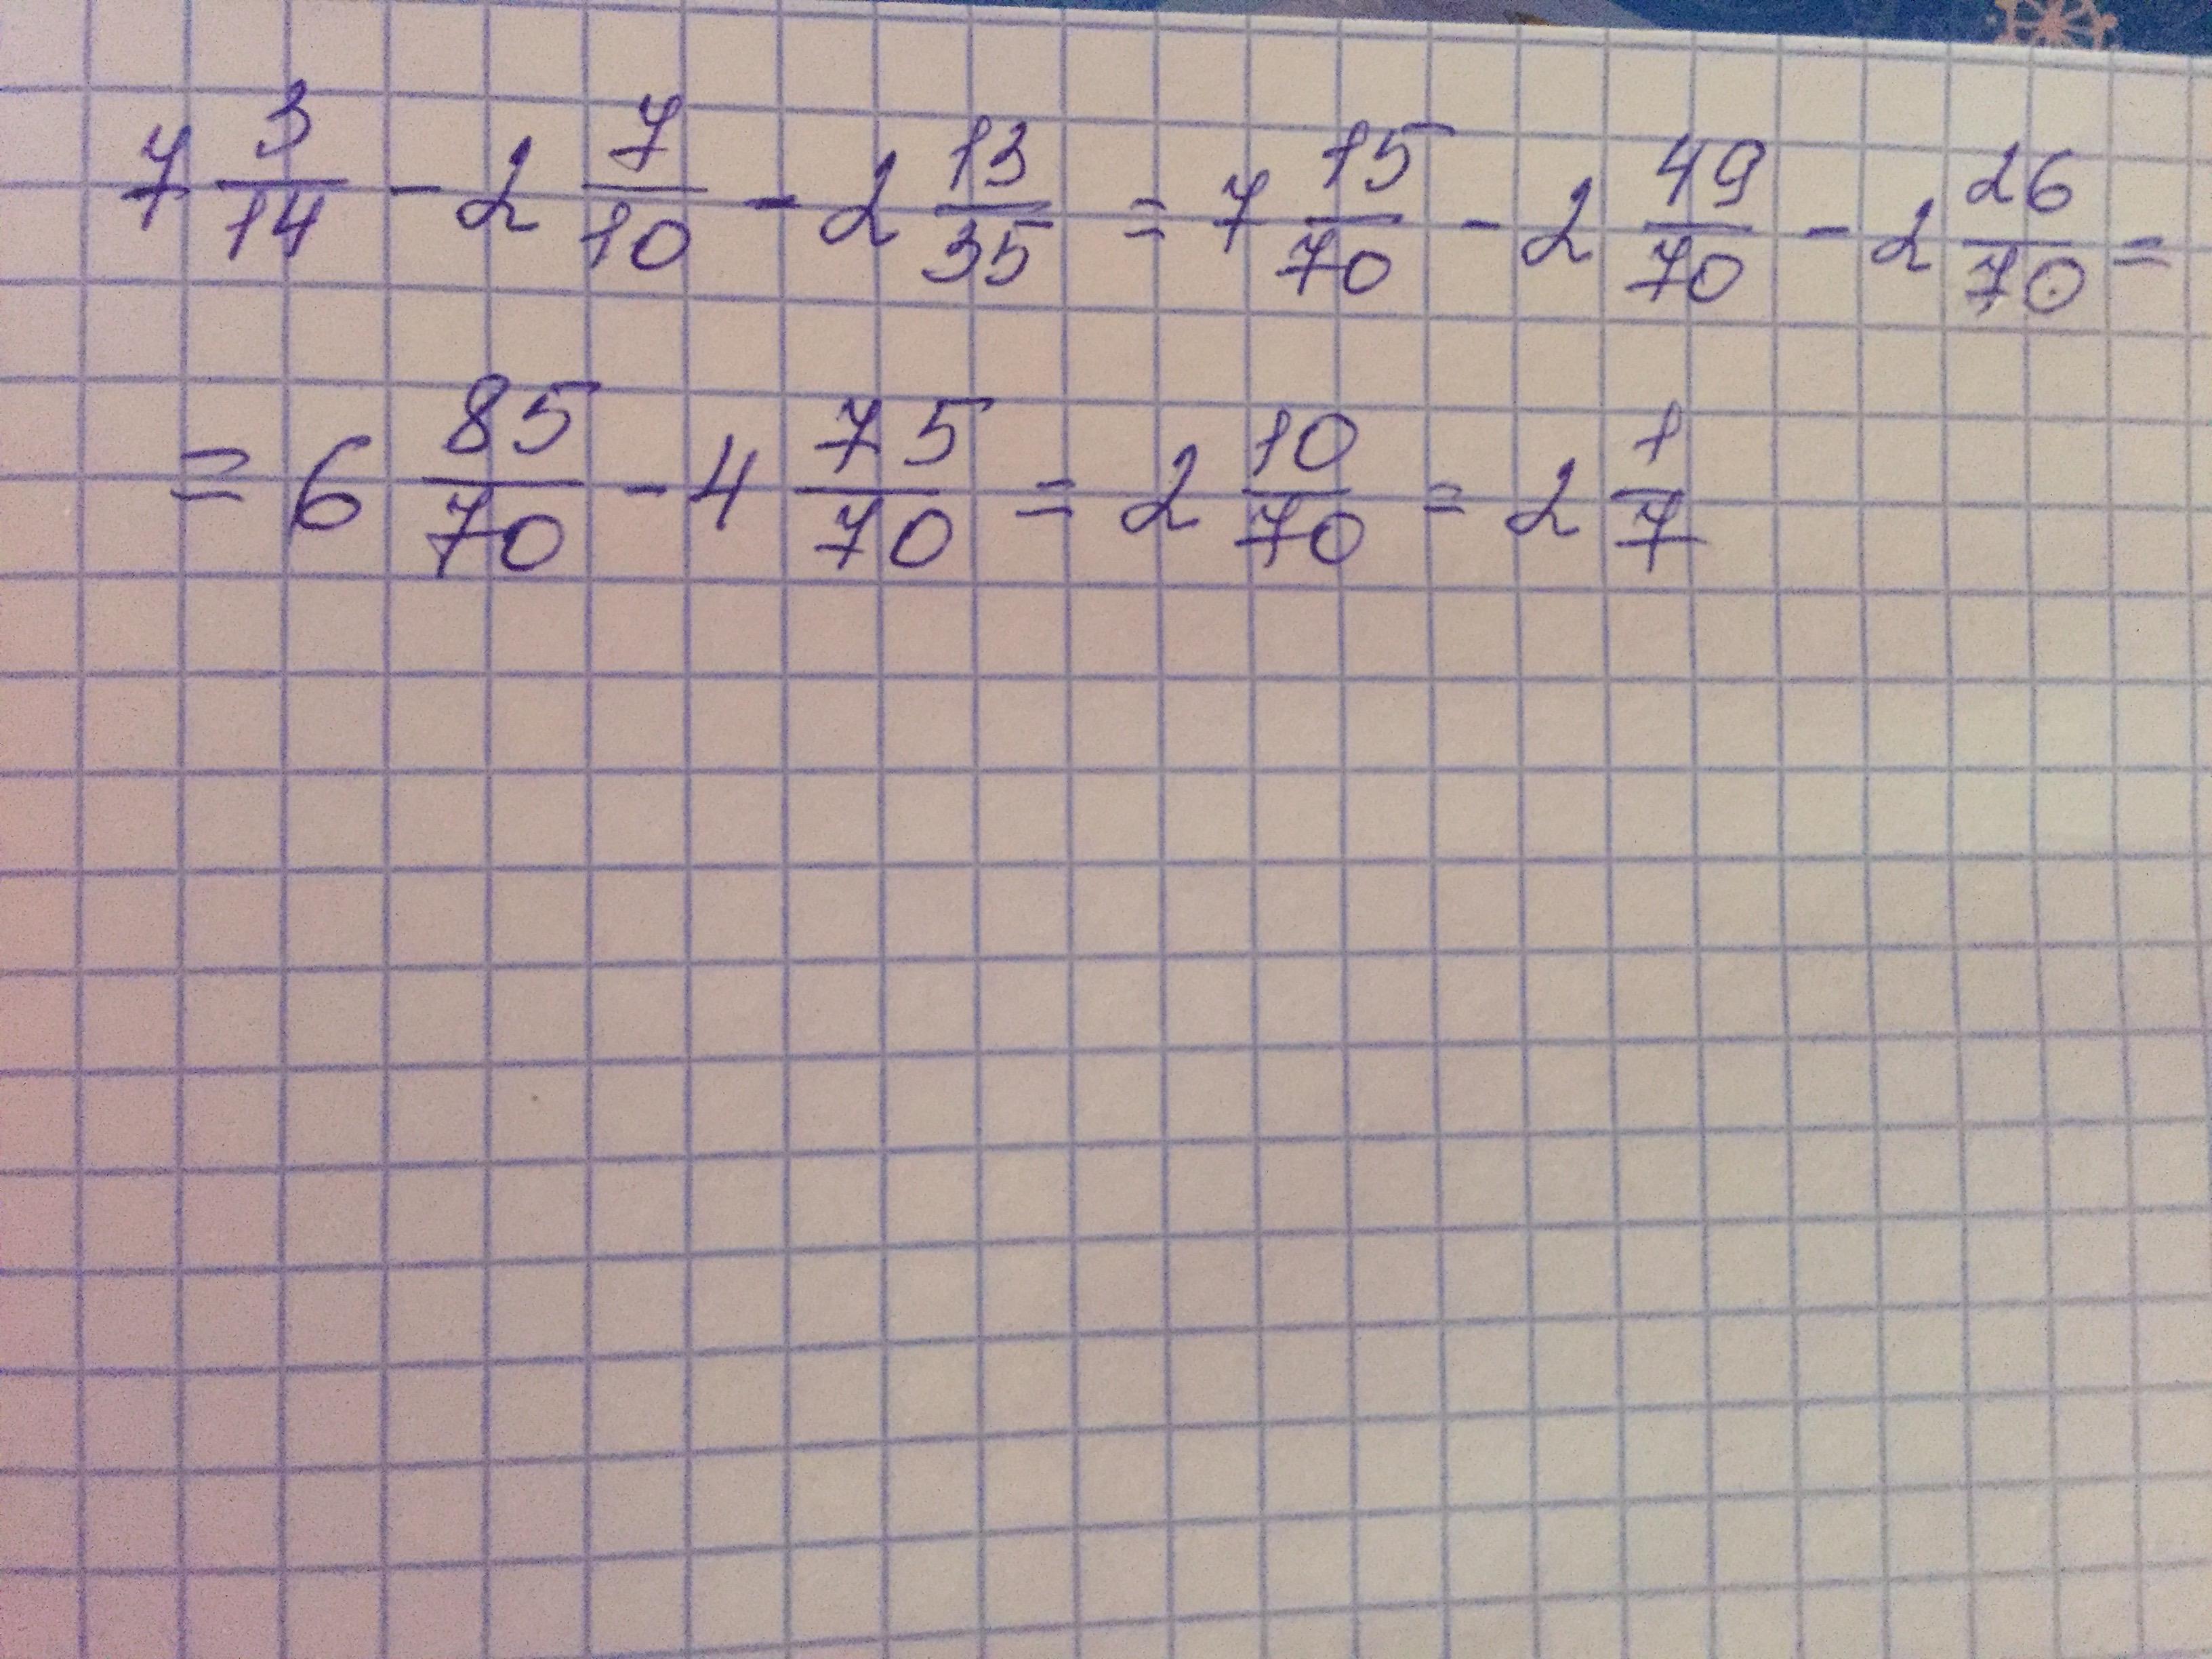 7 3/14 - 2 7/10 - 2 13/35 = 7 15/70 - 2 49/70 - 2 26/70 =
= 6 85/70 - 4 75/70 = 2 10/70 = 2 1/7